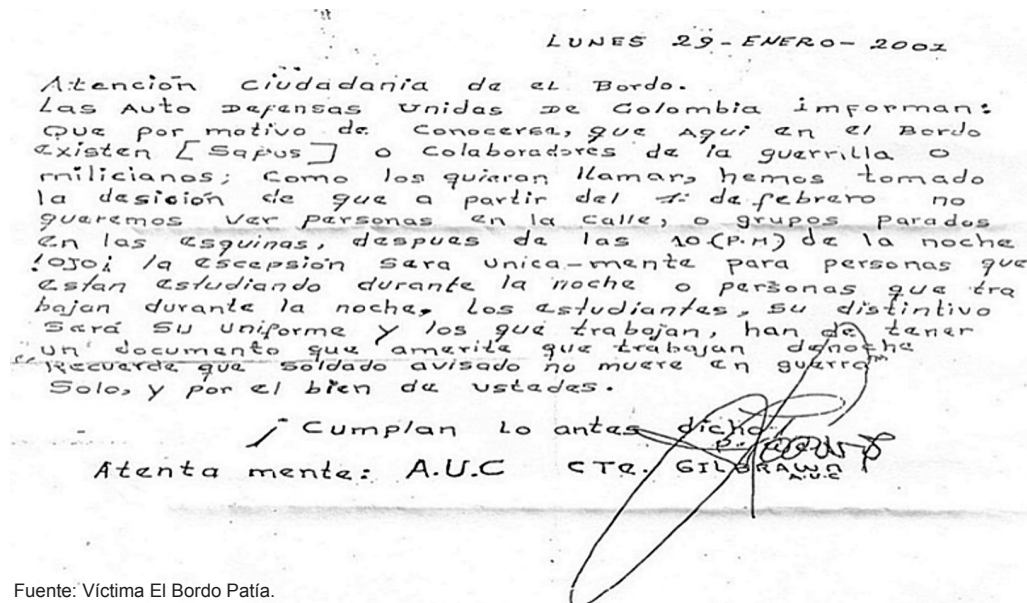 LUNES 29-ENERO-2001
Atención Ciudadania de el Bordo.
Las Auto Defensas Unidas De Colombia imforman:
Que por motivo de Conocerse, que Aqui en el Bordo
existen [Sapus] o Colaboradores de la guerrilla o
milicianos; Como los quieran llamar, hemos tomado
la desición de que a partir del 1: de febrero no
queremos ver personas en la calle, o grupos parados
en las esquinas, despues de las 10(P.M) de la noche
!OJO¡ la escepsión sera unica-mente para personas que
estan estudiando durante la noche o personas que tra
bajan durante la noche, Los estudiantes, su distintivo
Será su uniforme y los que trabajan, han de tener
un documento que amerite que trabajan denoche
"Recuerde que soldado avisado no muere en guerra"
Solo, y por el bien de ustedes.
¡ Cumplan Lo antes dicho
Atenta mente: A.U.C CTE. GILBRAWN
A.U.C
Fuente: Víctima El Bordo Patía.